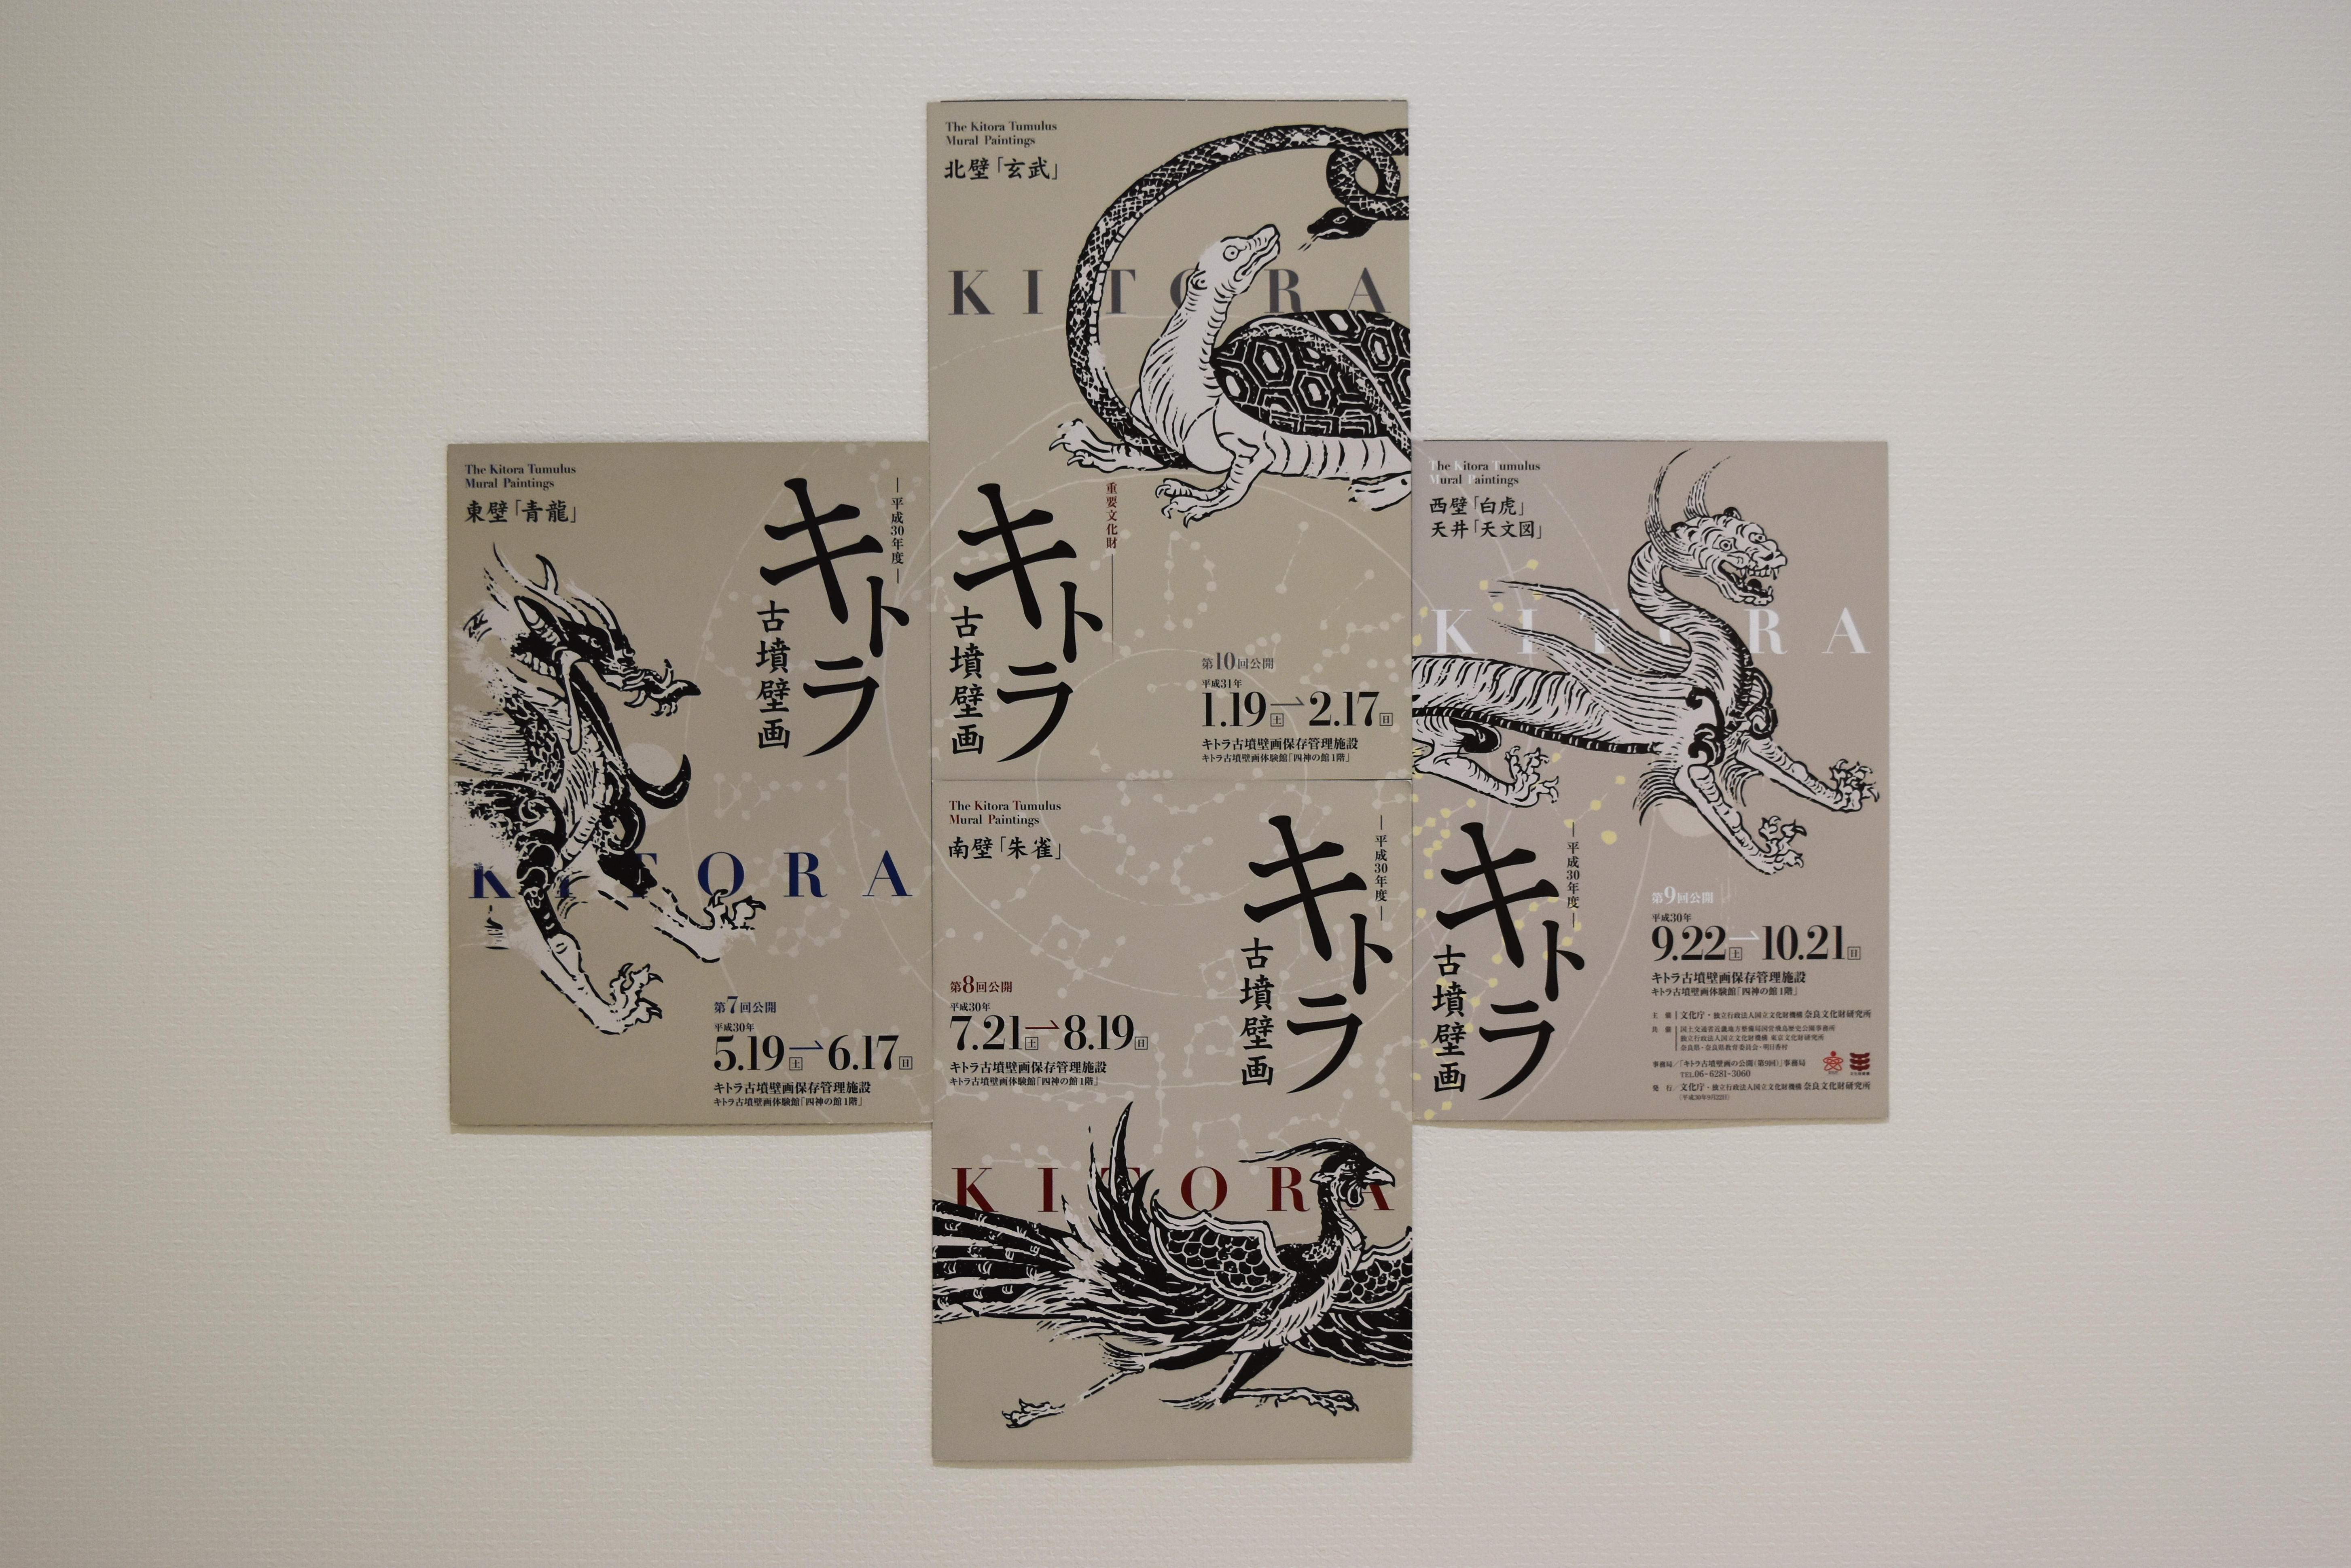 The Kitora Tumulus
Mural Paintings
北壁「玄武」
KITORA
重要文化財
キトラ
古墳壁画
第10回公開
平成31年
1.19土→2.17日
キトラ古墳壁画保存管理施設
キトラ古墳壁画体験館「四神の館1階」
The Kitora Tumulus
Mural Paintings
東壁「青龍」
平成30年度
キトラ
古墳壁画
KITORA
第7回公開
平成30年
5.19土→6.17日
キトラ古墳壁画保存管理施設
キトラ古墳壁画体験館「四神の館1階」
The Kitora Tumulus
Mural Paintings
南壁「朱雀」
平成30年度
キトラ
古墳壁画
第8回公開
平成30年
7.21土→8.19日
キトラ古墳壁画保存管理施設
キトラ古墳壁画体験館「四神の館1階」
KITORA
The Kitora Tumulus
Mural Paintings
西壁「白虎」
天井「天文図」
KITORA
平成30年度
キトラ
古墳壁画
第9回公開
平成30年
9.22土→10.21日
キトラ古墳壁画保存管理施設
キトラ古墳壁画体験館「四神の館1階」
主催 文化庁・独立行政法人国立文化財機構 奈良文化財研究所
共催 国土交通省近畿地方整備局国営飛鳥歴史公園事務所
独立行政法人国立文化財機構 東京文化財研究所
奈良県・奈良県教育委員会・明日香村
事務局/「キトラ古墳壁画の公開(第9回)」事務局
TEL.06-6281-3060
発行/文化庁・独立行政法人国立文化財機構 奈良文化財研究所
(平成30年9月22日)